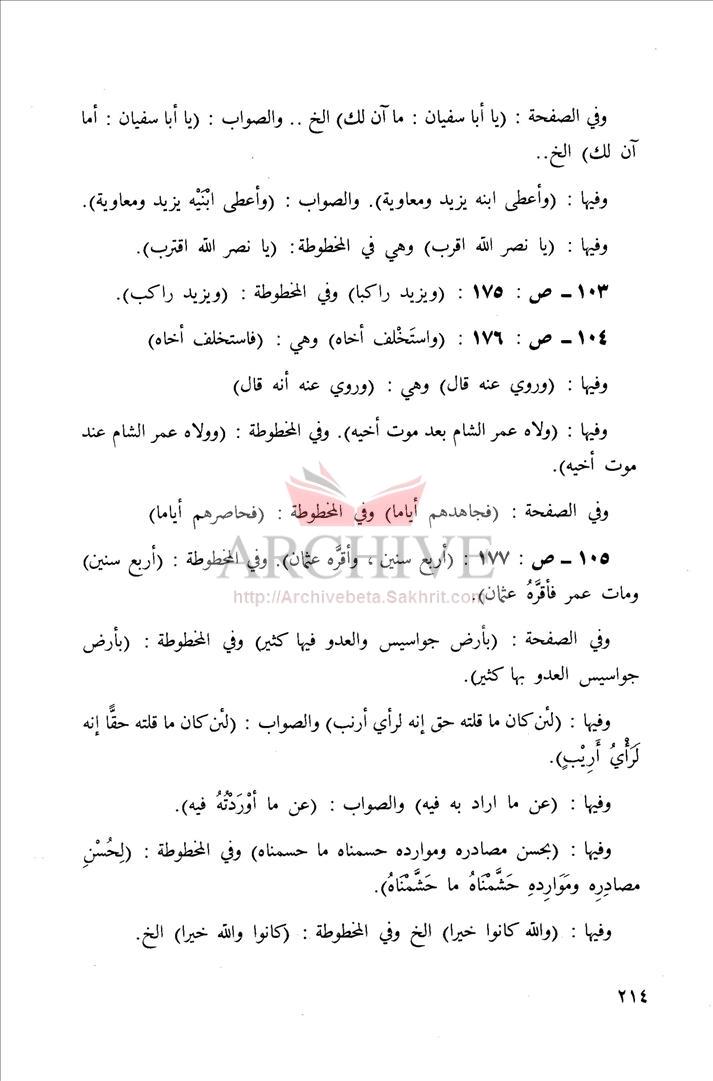 وفي الصفحة : (يا أبا سفيان : ما آن لك) الخ .. والصواب : (يا أبا سفيان : أما
آن لك) الخ..
وفيها : (وأعطى ابنه يزيد ومعاوية). والصواب : (وأعطى ابْنَيْه يزيد ومعاوية).
وفيها : (يا نصر الله اقرب) وهي في المخطوطة: (يا نصر الله اقترب).
١٠٣ ـ ص : ١٧٥ : (ويزيد راكبا) وفي المخطوطة : (ويزيد راكب).
١٠٤ ـ ص : ١٧٦ : (واستَخْلف أخاه) وهي : (فاستخلف أخاه)
وفيها : (وروي عنه قال) وهي : (وروي عنه أنه قال)
وفيها : (ولاه عمر الشام بعد موت أخيه). وفي المخطوطة : (وولاه عمر الشام عند
موت أخيه).
وفي الصفحة : (فجاهدهم أياما) وفي المخطوطة : (فحاصرهم أياما)
١٠٥ ـ ص : ١٧٧ : (أربع سنين ، وأقرَّه عثمان). وفي المخطوطة : (أربع سنين)
ARCHIVE
ومات عمر فأقرَّهُ عثمان).
http://Archivebeta.Sakhrit.com
وفي الصفحة : (بأرض جواسيس والعدو فيها كثير) وفي المخطوطة : (بأرض
جواسيس العدو بها كثير).
وفيها : (لئن كان ما قلته حق إنه لرأي أرنب) والصواب : (لئن كان ما قلته حقًّا إنه
لَرَأْيُ أَرِيْبٍ).
وفيها : (عن ما اراد به فيه) والصواب : (عن ما أوْرَدْتُهُ فيه).
وفيها : (بحسن مصادره وموارده حسمناه ما حسمناه) وفي المخطوطة : (لِحُسْنِ
مصادِرِه ومَوَارِدِهِ حَشَّمْنَاهُ ما حَشَّمْنَاهُ).
وفيها : (والله كانوا خيرا) الخ وفي المخطوطة : (كانوا والله خيرا) الخ.
٢١٤